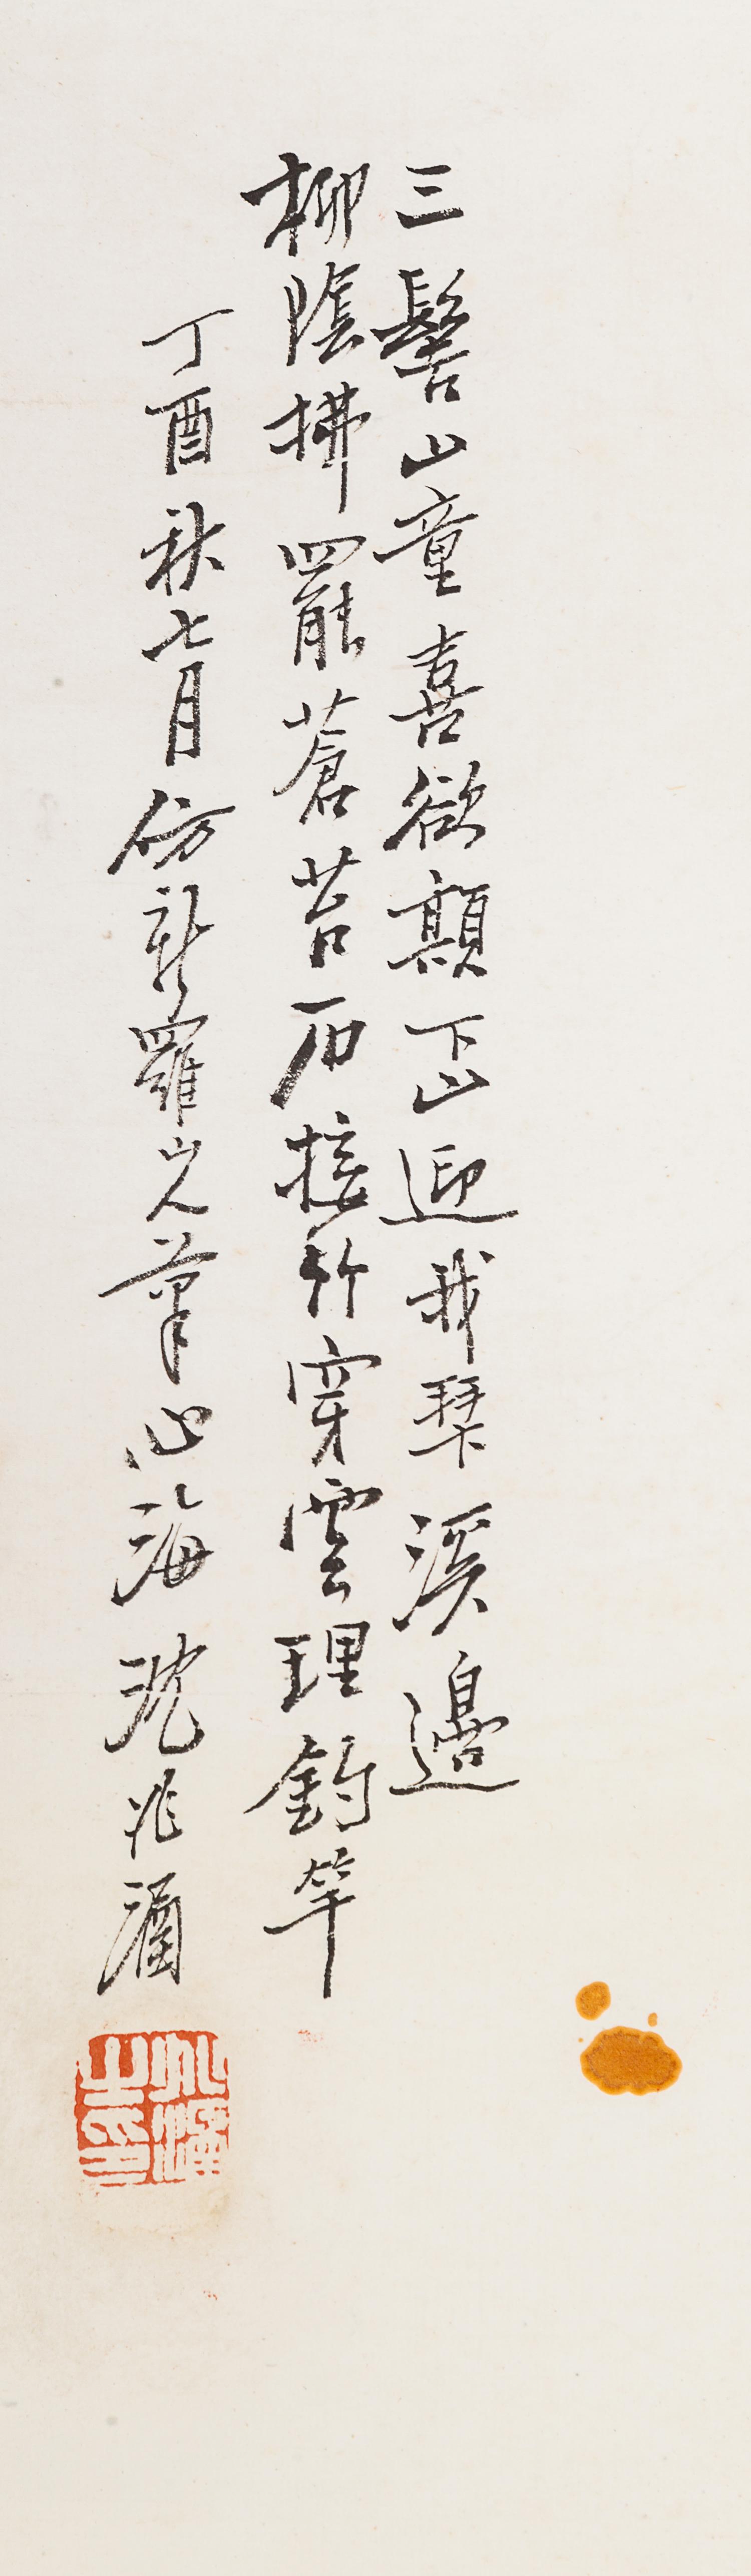 三髻山童喜欲顛下山迎我琹溪邊
柳陰拂罷蒼苔石接竹穿雲理釣竿
丁酉秋七月仿新羅山人筆心海沈兆涵
兆涵之印